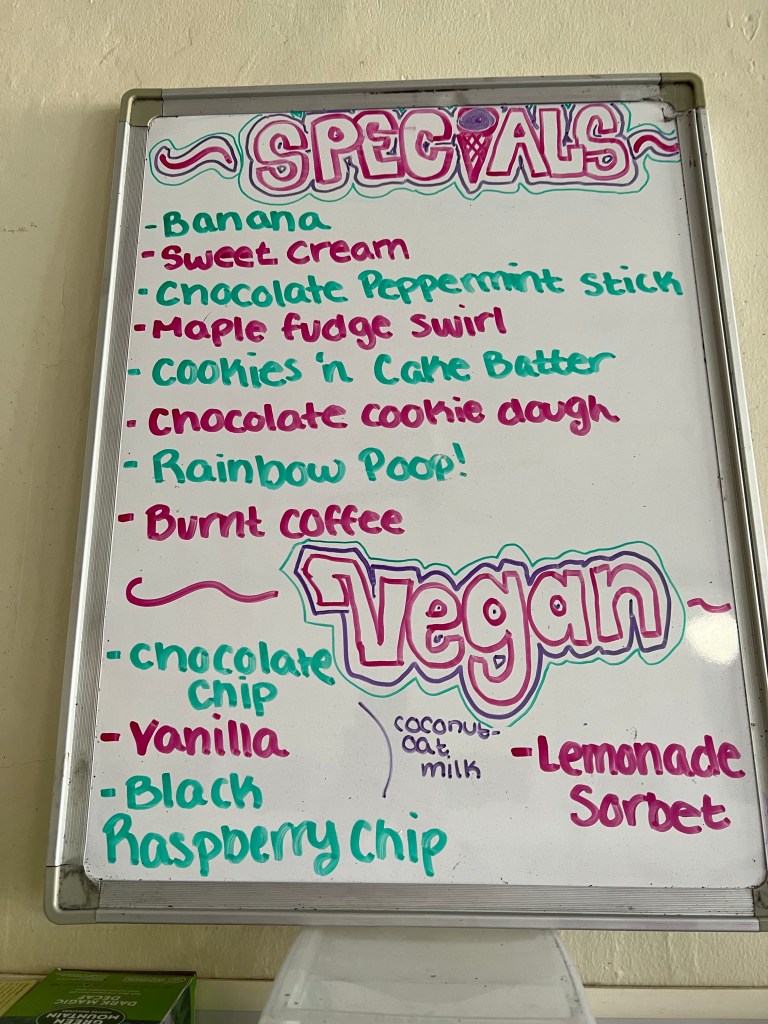 SPECIALS
- Banana
- Sweet Cream
- Chocolate Peppermint Stick
- Maple fudge swirl
- Cookies 'n Cake Batter
- Chocolate cookie dough
- Rainbow Poop!
- Burnt coffee
Vegan
- Chocolate
chip
- Vanilla
- Black
Raspberry Chip
coconut-
oat
milk
- Lemonade
Sorbet
GREEN
MOUNTAIN
DARK MAGIC
DECAF